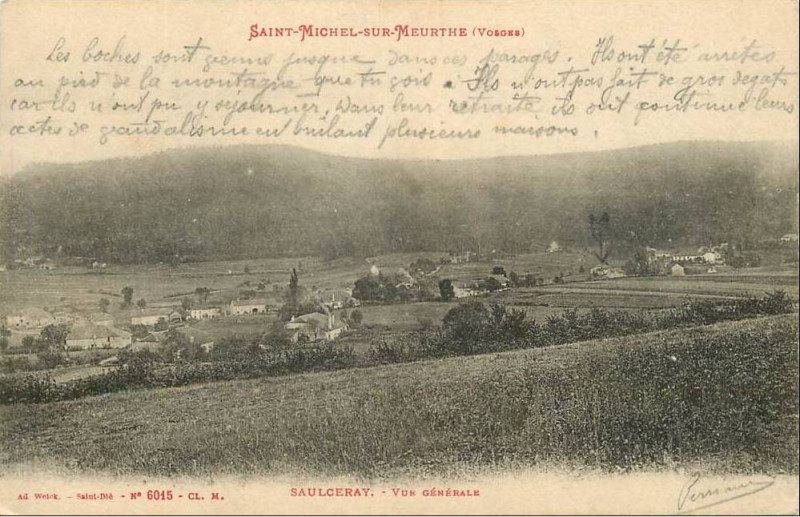 SAINT-MICHEL-SUR-MEURTHE (VOSGES)
Les boches sont venus jusque dans ces parages. Ils ont été arrêtés
au pied de la montagne que tu vois. Ils n'ont pas fait de gros degats
car ils n'ont pu y sejourner. Dans leur retraite ils ont continué leurs
actes de vandalisme en brulant plusieurs maisons.
Ad. Weick. - Saint-Dié - Nº 6015 - CL. M.
SAULCERAY. - VUE GÉNÉRALE